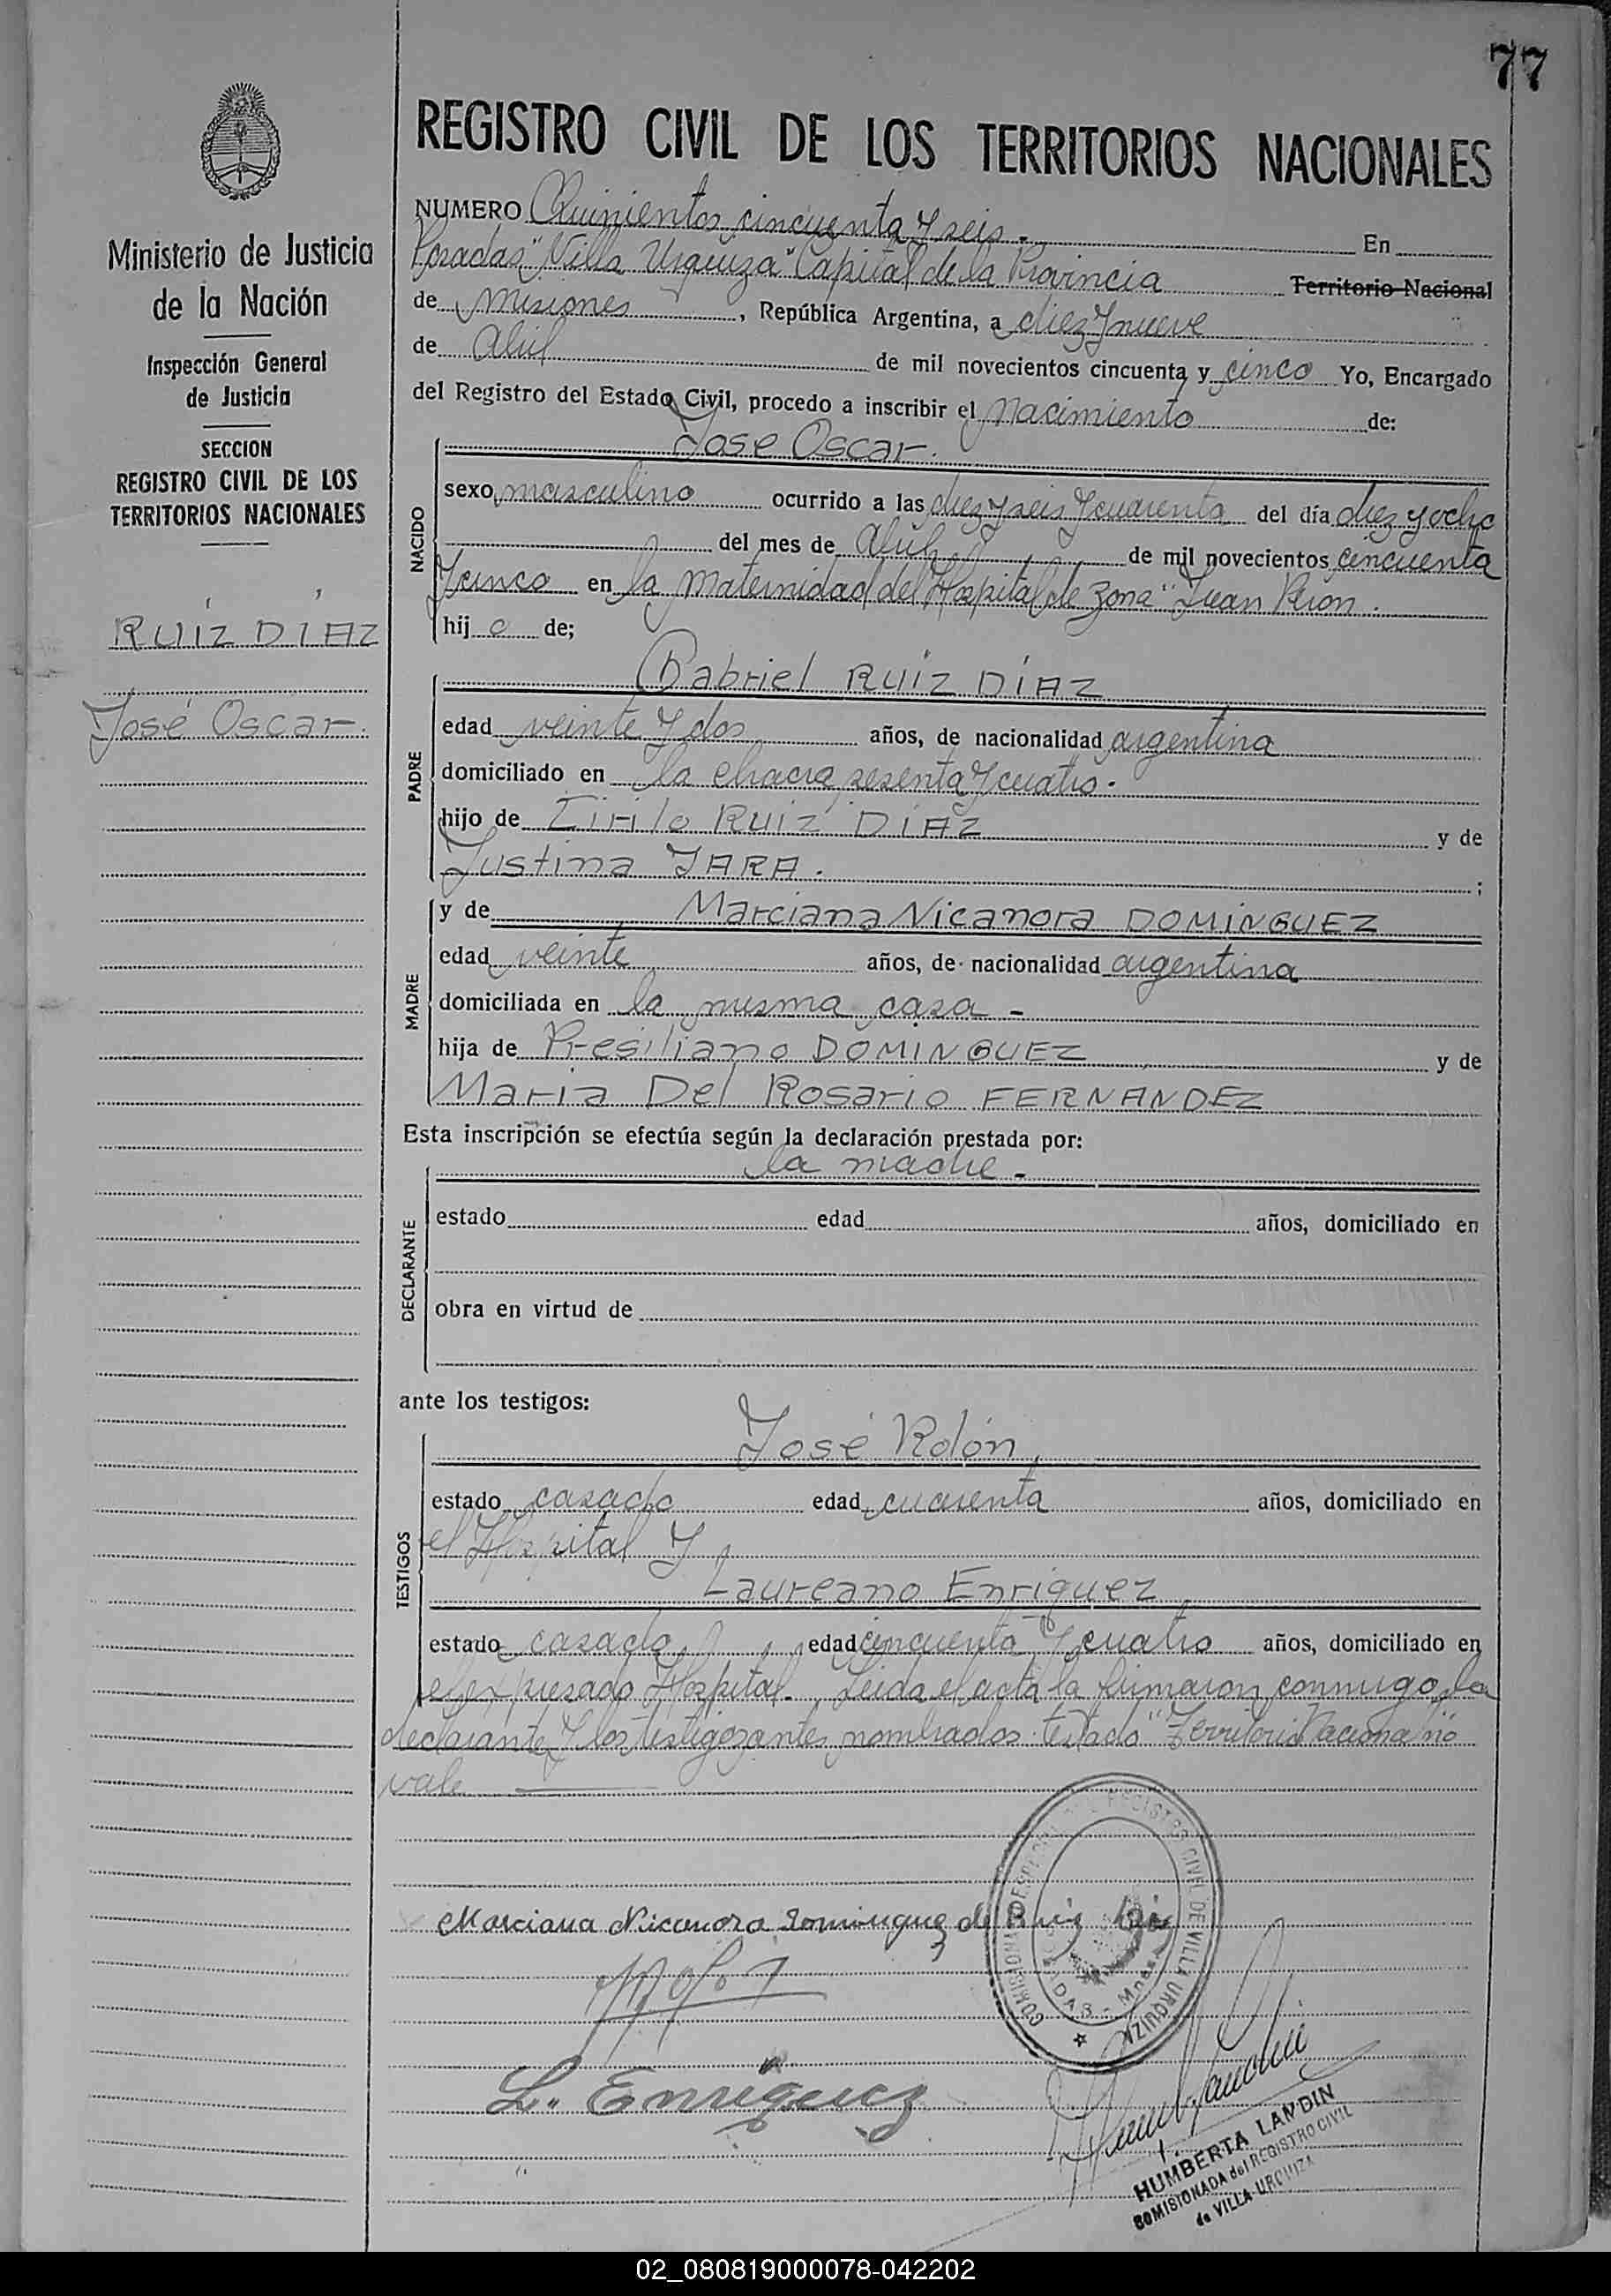 77
Ministerio de Justicia
de la Nación
Inspección General
de Justicia
SECCION
REGISTRO CIVIL DE LOS
TERRITORIOS NACIONALES
RUIZ DIAZ
José Oscar.
REGISTRO CIVIL DE LOS TERRITORIOS NACIONALES
NUMERO Quinientos cincuenta y seis.- En
Posadas "Villa Urquiza" Capital de la Provincia Territorio Nacional
de Misiones, República Argentina, a diez y nueve
de Abril de mil novecientos cincuenta y cinco Yo, Encargado
del Registro del Estado Civil, procedo a inscribir el Nacimiento de:
José Oscar.
NACIDO
sexo masculino ocurrido a las diez y seis y cuarenta del día diez y ocho
del mes de Abril de mil novecientos cincuenta
y cinco en la Maternidad del Hospital de Zona "Juan Perón.
hijo de;
Gabriel RUIZ DÍAZ
PADRE
edad veinte y dos años, de nacionalidad argentina
domiciliado en la chacra sesenta y cuatro.
hijo de Cirilo RUIZ DIAZ y de
Justina JARA. ;
MADRE
y de Marciana Nicanora DOMINGUEZ
edad veinte años, de nacionalidad argentina
domiciliada en la misma casa -
hija de Presiliano DOMINGUEZ y de
Maria Del Rosario FERNANDEZ
Esta inscripción se efectúa según la declaración prestada por:
la madre.
DECLARANTE
estado edad años, domiciliado en
obra en virtud de
ante los testigos:
TESTIGOS
José Rolón
estado casado edad cuarenta años, domiciliado en
el Hospital y
Laureano Enriquez
estado casado edad cincuenta y cuatro años, domiciliado en
el expresado Hospital. Leida el acta la firmaron conmigo la
declarante y los testigos antes nombrados. testado "Territorio Nacional" no
vale
Marciana Nicanora Dominguez de Ruiz Diaz
L. Enriquez
REGISTRO CIVIL DE VILLA URQUIZA
HUMBERTA LANDIN
COMISIONADA del REGISTRO CIVIL
de VILLA URQUIZA
02_080819000078-042202